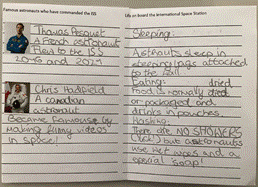 Famous astronauts who have commanded the ISS
Thomas Pesquet
A French astronaut
Flew to the ISS
2016 and 2021
Chris Hadfield
A canadian
astronaut
Became famouse by
making funny videos
in space!
Life on Board the International Space Station
Sleeping:
Astronauts sleep in
sleeping bags attached
to the wall
Eating: dried
Food is normally dried
or packaged and
drinks in pouches.
Washing:
There are NO SHOWERS
(Yuck!) but astronauts
use wet wipes and a
special 'soap'!